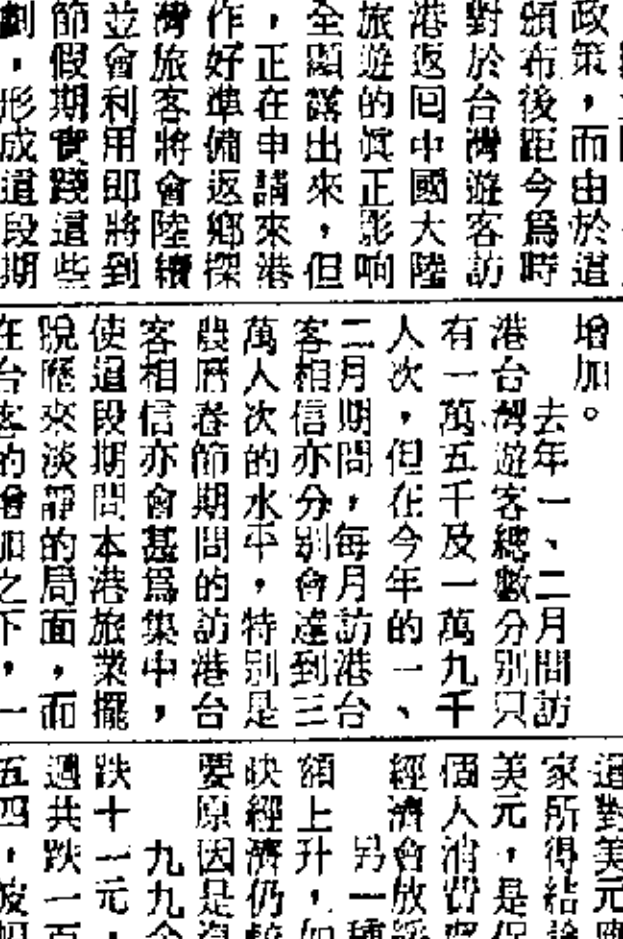 政策,而由於這
頒布後距今爲時
對於台灣遊客訪
港返回中國大陸
旅遊的眞正影响
全顯露出來,但
,正在申請來港
作好準備返鄉探
灣旅客將會陸續
並會利用即將到
節假期實踐這些
劃,形成這段期
增加。
去年一、二月間訪
港台灣遊客總數分別只
有一萬五千及一萬九千
人次,但在今年的一、
二月期間,每月訪港台
客相信亦分別會達到三
萬人次的水平,特別是
農曆春節期間的訪港台
客相信亦會甚爲集中,
使這段期間本港旅業擺
脫歷來淡靜的局面,而
在台客的增加之下,一
通對美元
家所得結論
美元,是保
個人消費
經濟會放緩
另一種
額上升,如
快經濟仍較
要原因是
九九
跌十一元,
週共跌一百
五四,